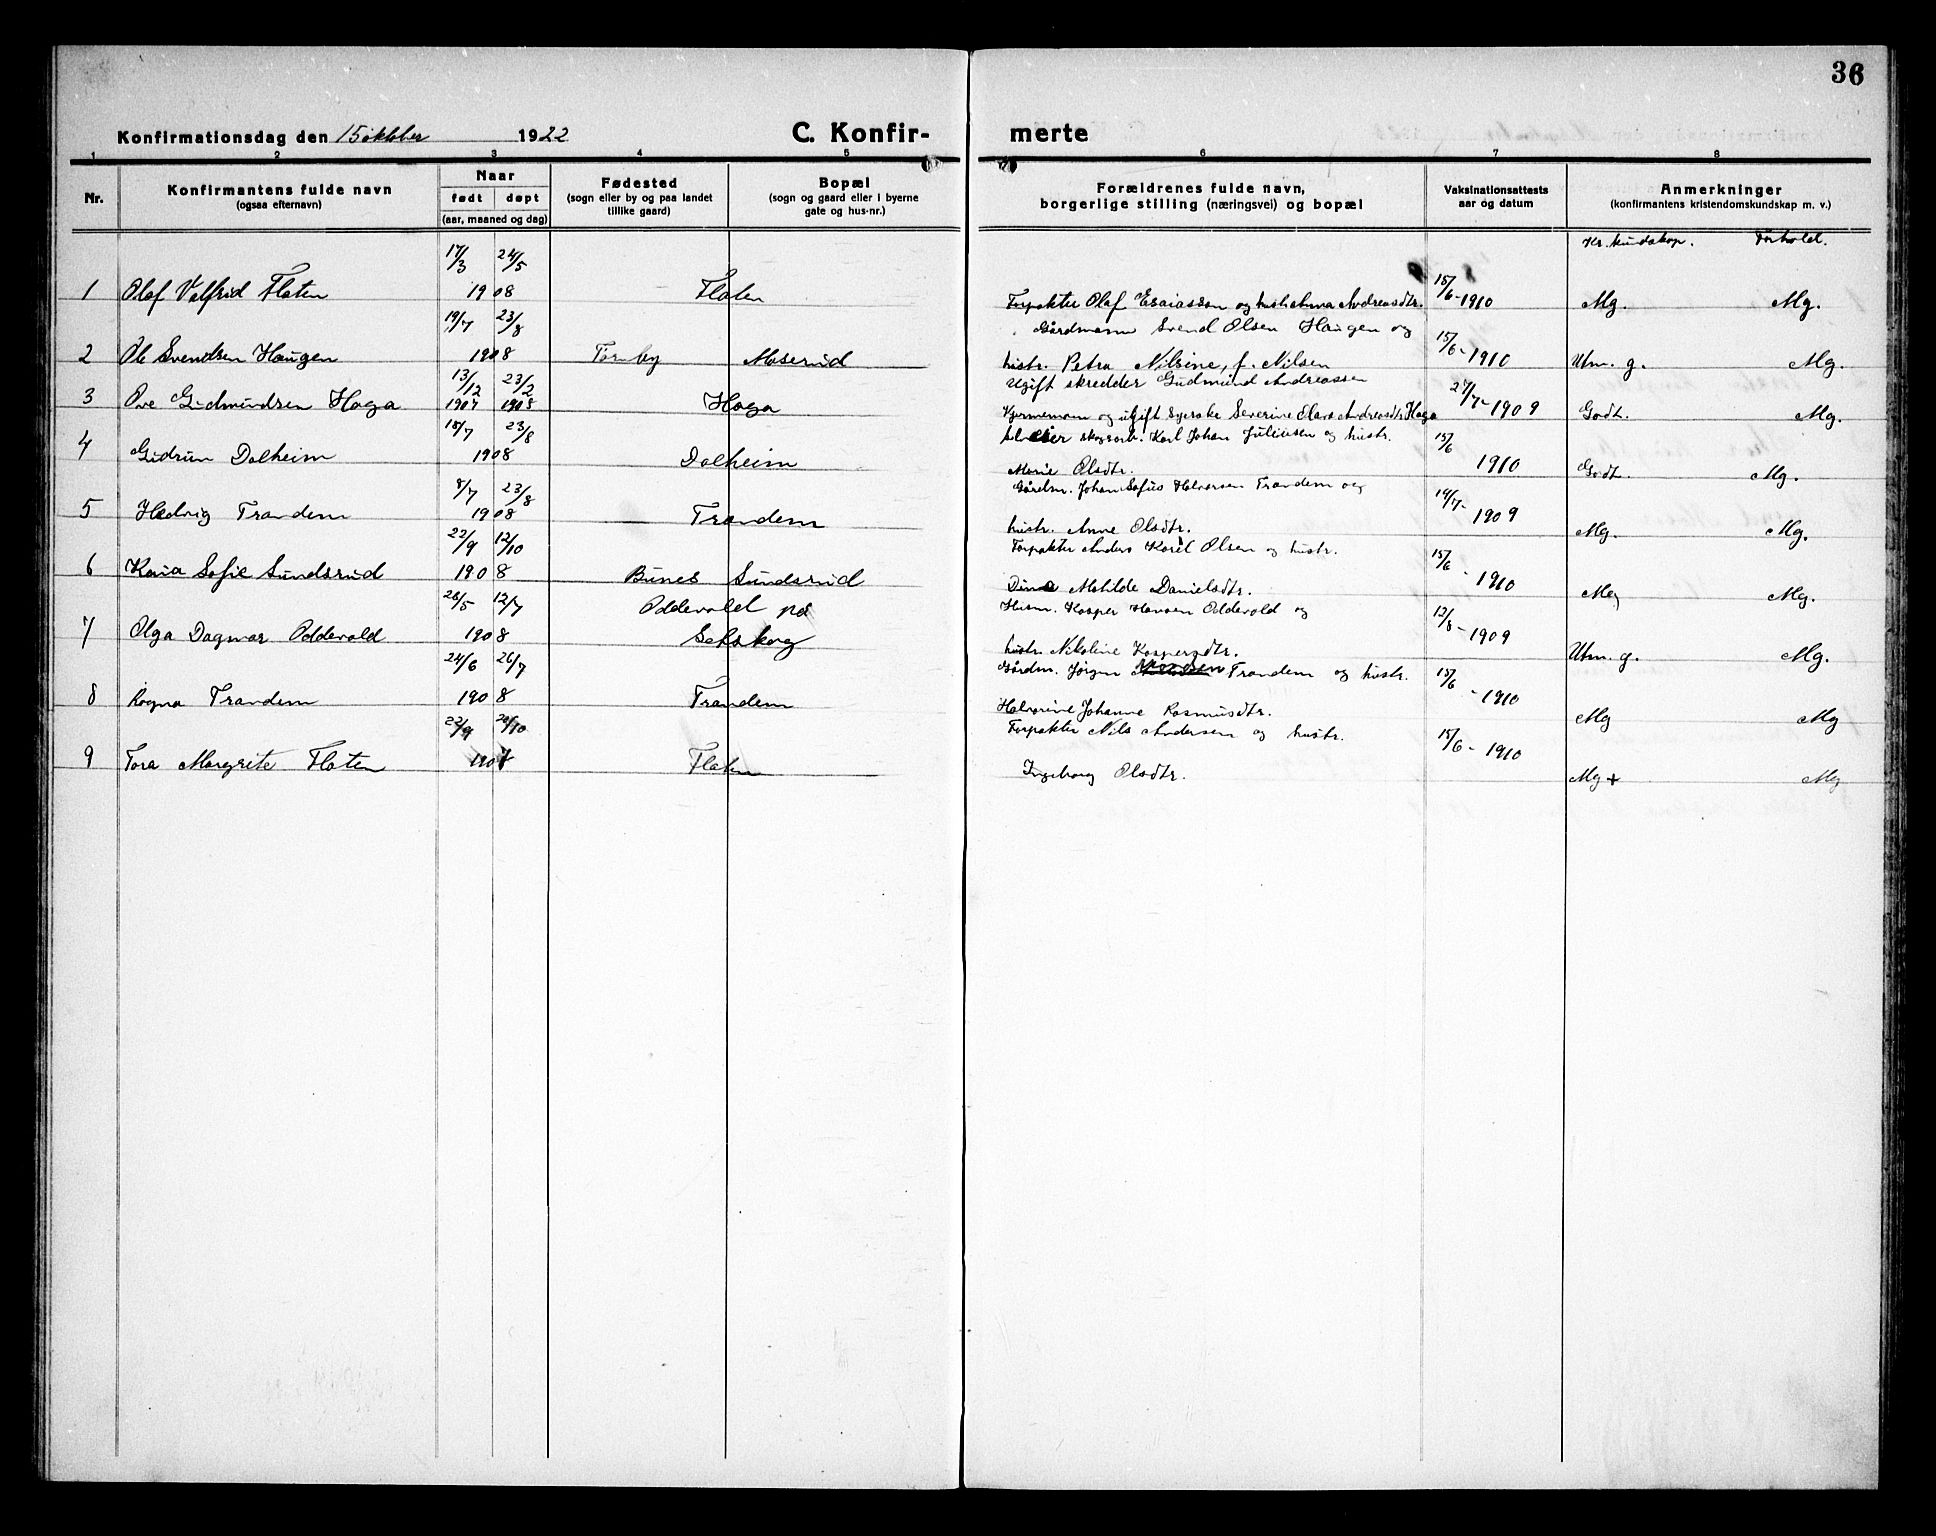 36
Konfirmationsdag den 15 oktober 1922 C. Konfir- merte
1 2 3 4 5 6 7 8
Nr. Konfirmantens fulde navn (ogsaa efternavn) Naar født døpt (aar, maaned og dag) Fødested (sogn eller by og paa landet tillike gaard) Bopæl (sogn og gaard eller i byerne gate og hus-nr.) Forældrenes fulde navn, borgerlige stilling (næringsvei) og bopæl Vaksinationsattests aar og datum Anmerkninger (konfirmantens kristendomskundskap m. v.)
Kr. kundskap. Forhold.
17/3 24/5
1 Olaf Valfrid Flaten 1908 Flaten Forpakter Olaf Esaiasson og hustr. Anna Andreasdtr. 15/6-1910 Mg. Mg.
19/7 23/8 Gårdmann Svend Olsen Haugen og
2 Ole Svendsen Haugen 1908 Tornby Moserud hustr. Petra Nilsine, f. Nilsen 15/6-1910 Utm. g. Mg.
13/12 23/2 Ugift skredder Gudmund Andreassen
3 Ove Gudmundsen Haga 1907 1908 Haga Hjemmerom og ugift syerske Severine Elara Andreasdtr. Haga 27/7-1909 Godt. Mg.
18/7 23/8 skogsarb. Karl Johan Juliusen og hustr.
4 Gudrun Dalheim 1908 Dalheim Marie Olsdtr. 15/6 1910 Godt. Mg.
8/7 23/8 Gårdm. Johan Sofus Halvorsen Trandem og
5 Hedvig Trandem 1908 Trandem hustr. Anne Olsdtr. 14/7-1909 Mg. Mg.
22/9 12/10 Forpakter Anders Karel Olsen og hustr.
6 Kaia Sofie Sundsrud 1908 Bunes Sundsrud Dina Matilde Danielsdtr. 15/6-1910 Mg Mg.
26/5 12/7 Oddevald på Husm. Kasper Hansen Oddevald og
7 Olga Dagmar Oddevald 1908 Setskog hustr. Nikoline Kaspersdtr. 12/8-1909 Utm. g. Mg.
24/6 26/7 Gårdm. Jörgen Trandem og hustr.
8 Ragna Trandem 1908 Trandem Halvorine Johanne Rasmusdtr. 15/6-1910 Mg Mg
22/9 20/10 Forpakter Nils Andersen og hustr.
9 Tora Margrete Flaten 1907 Flaten Ingeborg Olsdtr. 15/6-1910 Mg+ Mg